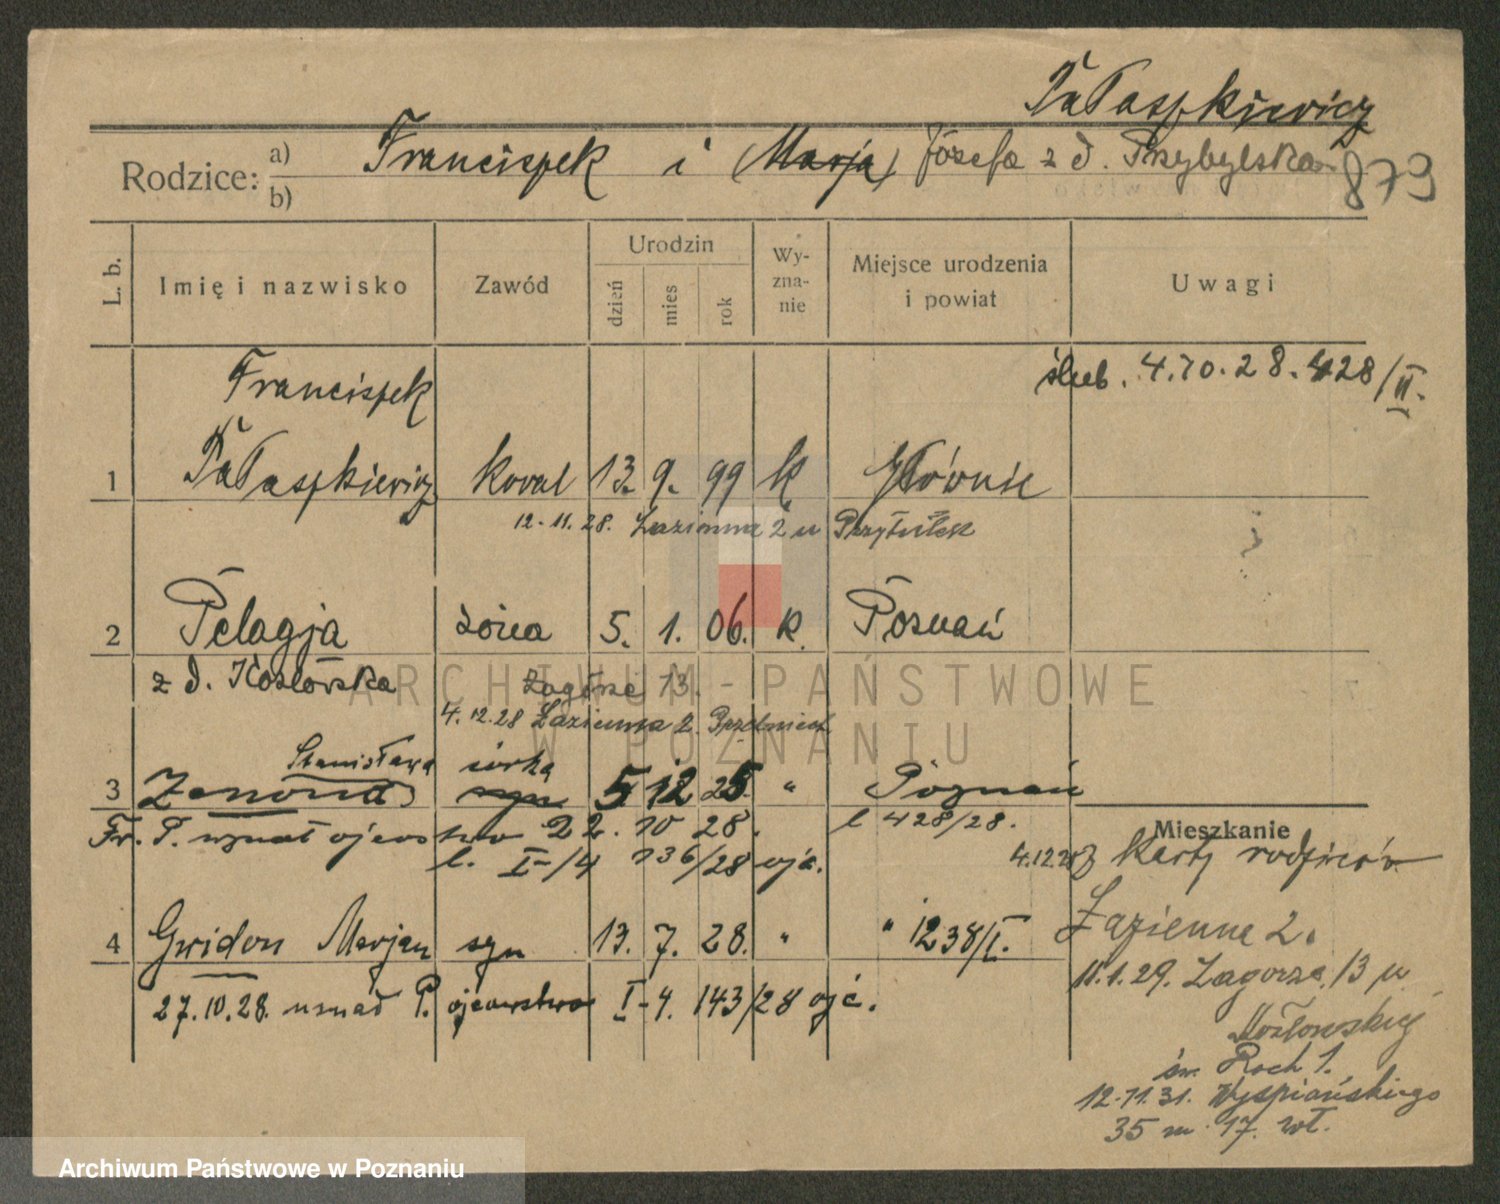 Pałaszkiewicz
Rodzice: a) b) Franciszek i (Marja) Józefa z d. Przybylska
873
L. b. Imię i nazwisko Zawód Urodzin dzień mies rok Wyznanie Miejsce urodzenia i powiat Uwagi
ślub. 4.10.28. 428/II.
Franciszek
1 Pałaszkiewicz Koval 13. 9. 99 k. Głównie
12-11.28. Łazienna 2 u
2 Pelagja żona 5. 1. 06. k. Poznań
z d. Kozłowska Zagórze 13.
4.12.28 Łazienna 2.
Stanisława córka
3 Zenona syn 5 12 25 " Poznań
Fr. P. uznał ojcostwo 22. 10 28. l 428/28.
Mieszkanie
l. I-/4 136/28 ojc. 4.12.28 z karty rodziców
4 Gwidon Marjan syn 13. 7. 28. " " 1238/I.
Łazienna 2.
27.10.28. uznał P. ojcowstwo I-4. 143/28 ojc.
11.1.29. Zagorze 13 u
Kozłowskiej
św. Roch 1.
12-11.31. Wyspiańskiego
35 m. 17. wł.
ARCHIWUM PAŃSTWOWE
W POZNANIU
Archiwum Państwowe w Poznaniu